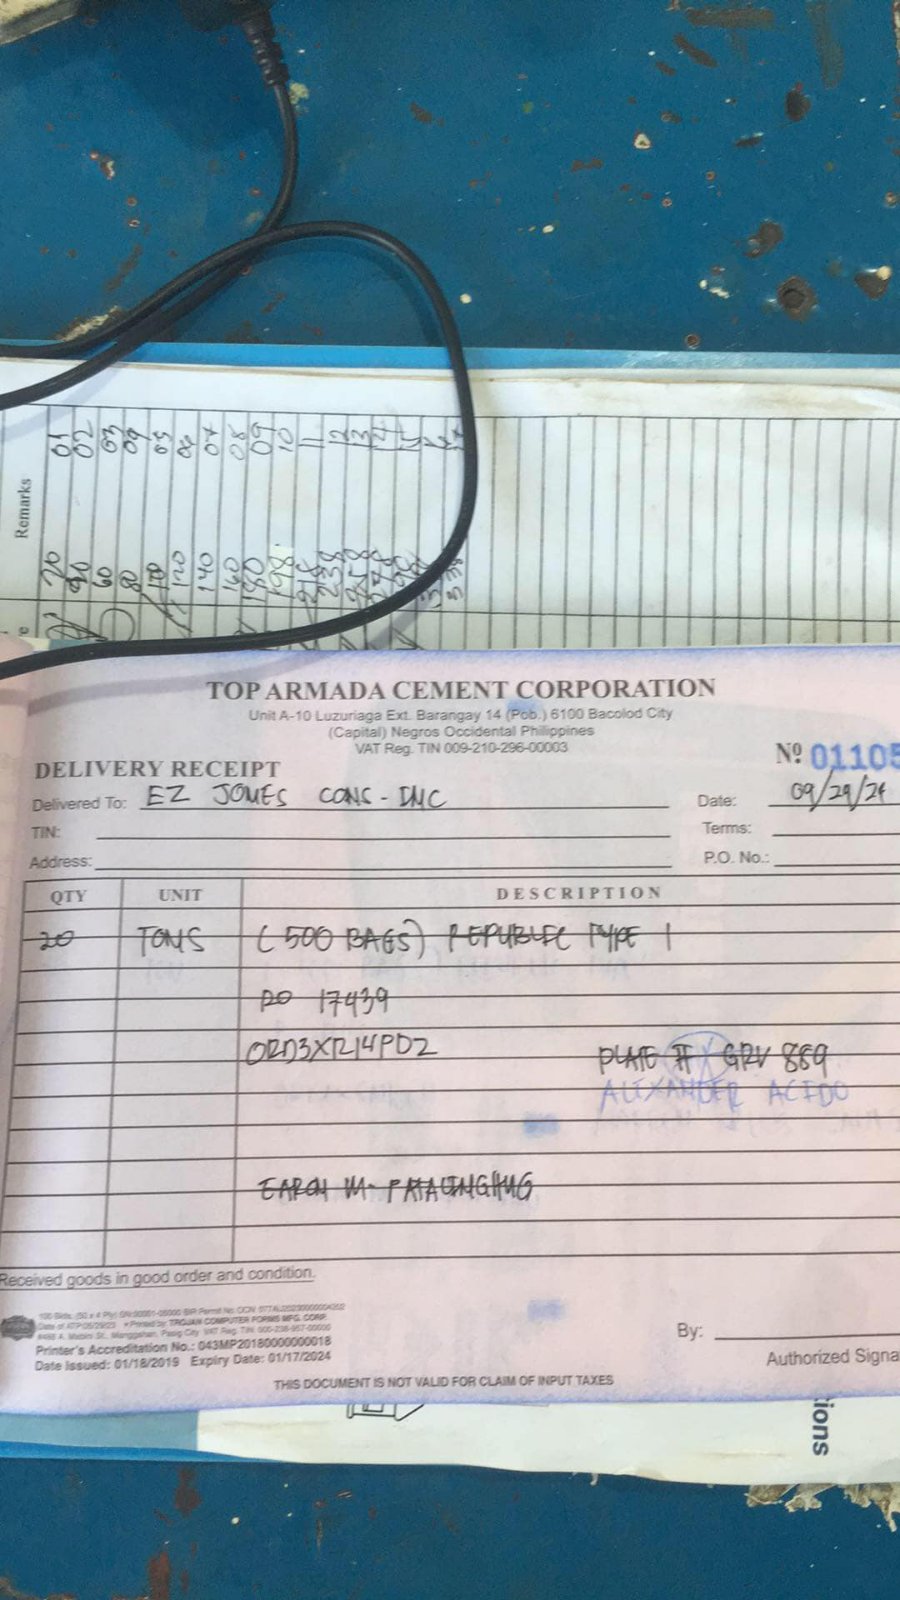 Remarks
01
02
03
04
05
06
07
08
09
10
11
12
13
14
20
40
60
80
100
120
140
160
180
198
218
238
258
338
TOP ARMADA CEMENT CORPORATION
Unit A-10 Luzuriaga Ext. Barangay 14 (Pob.) 6100 Bacolod City
(Capital) Negros Occidental Philippines
VAT Reg. TIN 009-210-296-00003
DELIVERY RECEIPT Nº 01105
Delivered To: EZ JONES CONS - INC Date: 09/29/24
TIN: Terms:
Address: P.O. No.:
QTY UNIT DESCRIPTION
20 TONS (500 BAGS) REPUBLIC TYPE 1
PO 17439
ORD3XR14PD2 PLATE # GRV 889
ALEXANDER ACEDO
M. PATALINGHUG
Received goods in good order and condition.
Printer's Accreditation No.: 043MP20180000000018
Date Issued: 01/18/2019 Expiry Date: 01/17/2024
By:
Authorized Signa
THIS DOCUMENT IS NOT VALID FOR CLAIM OF INPUT TAXES
ions